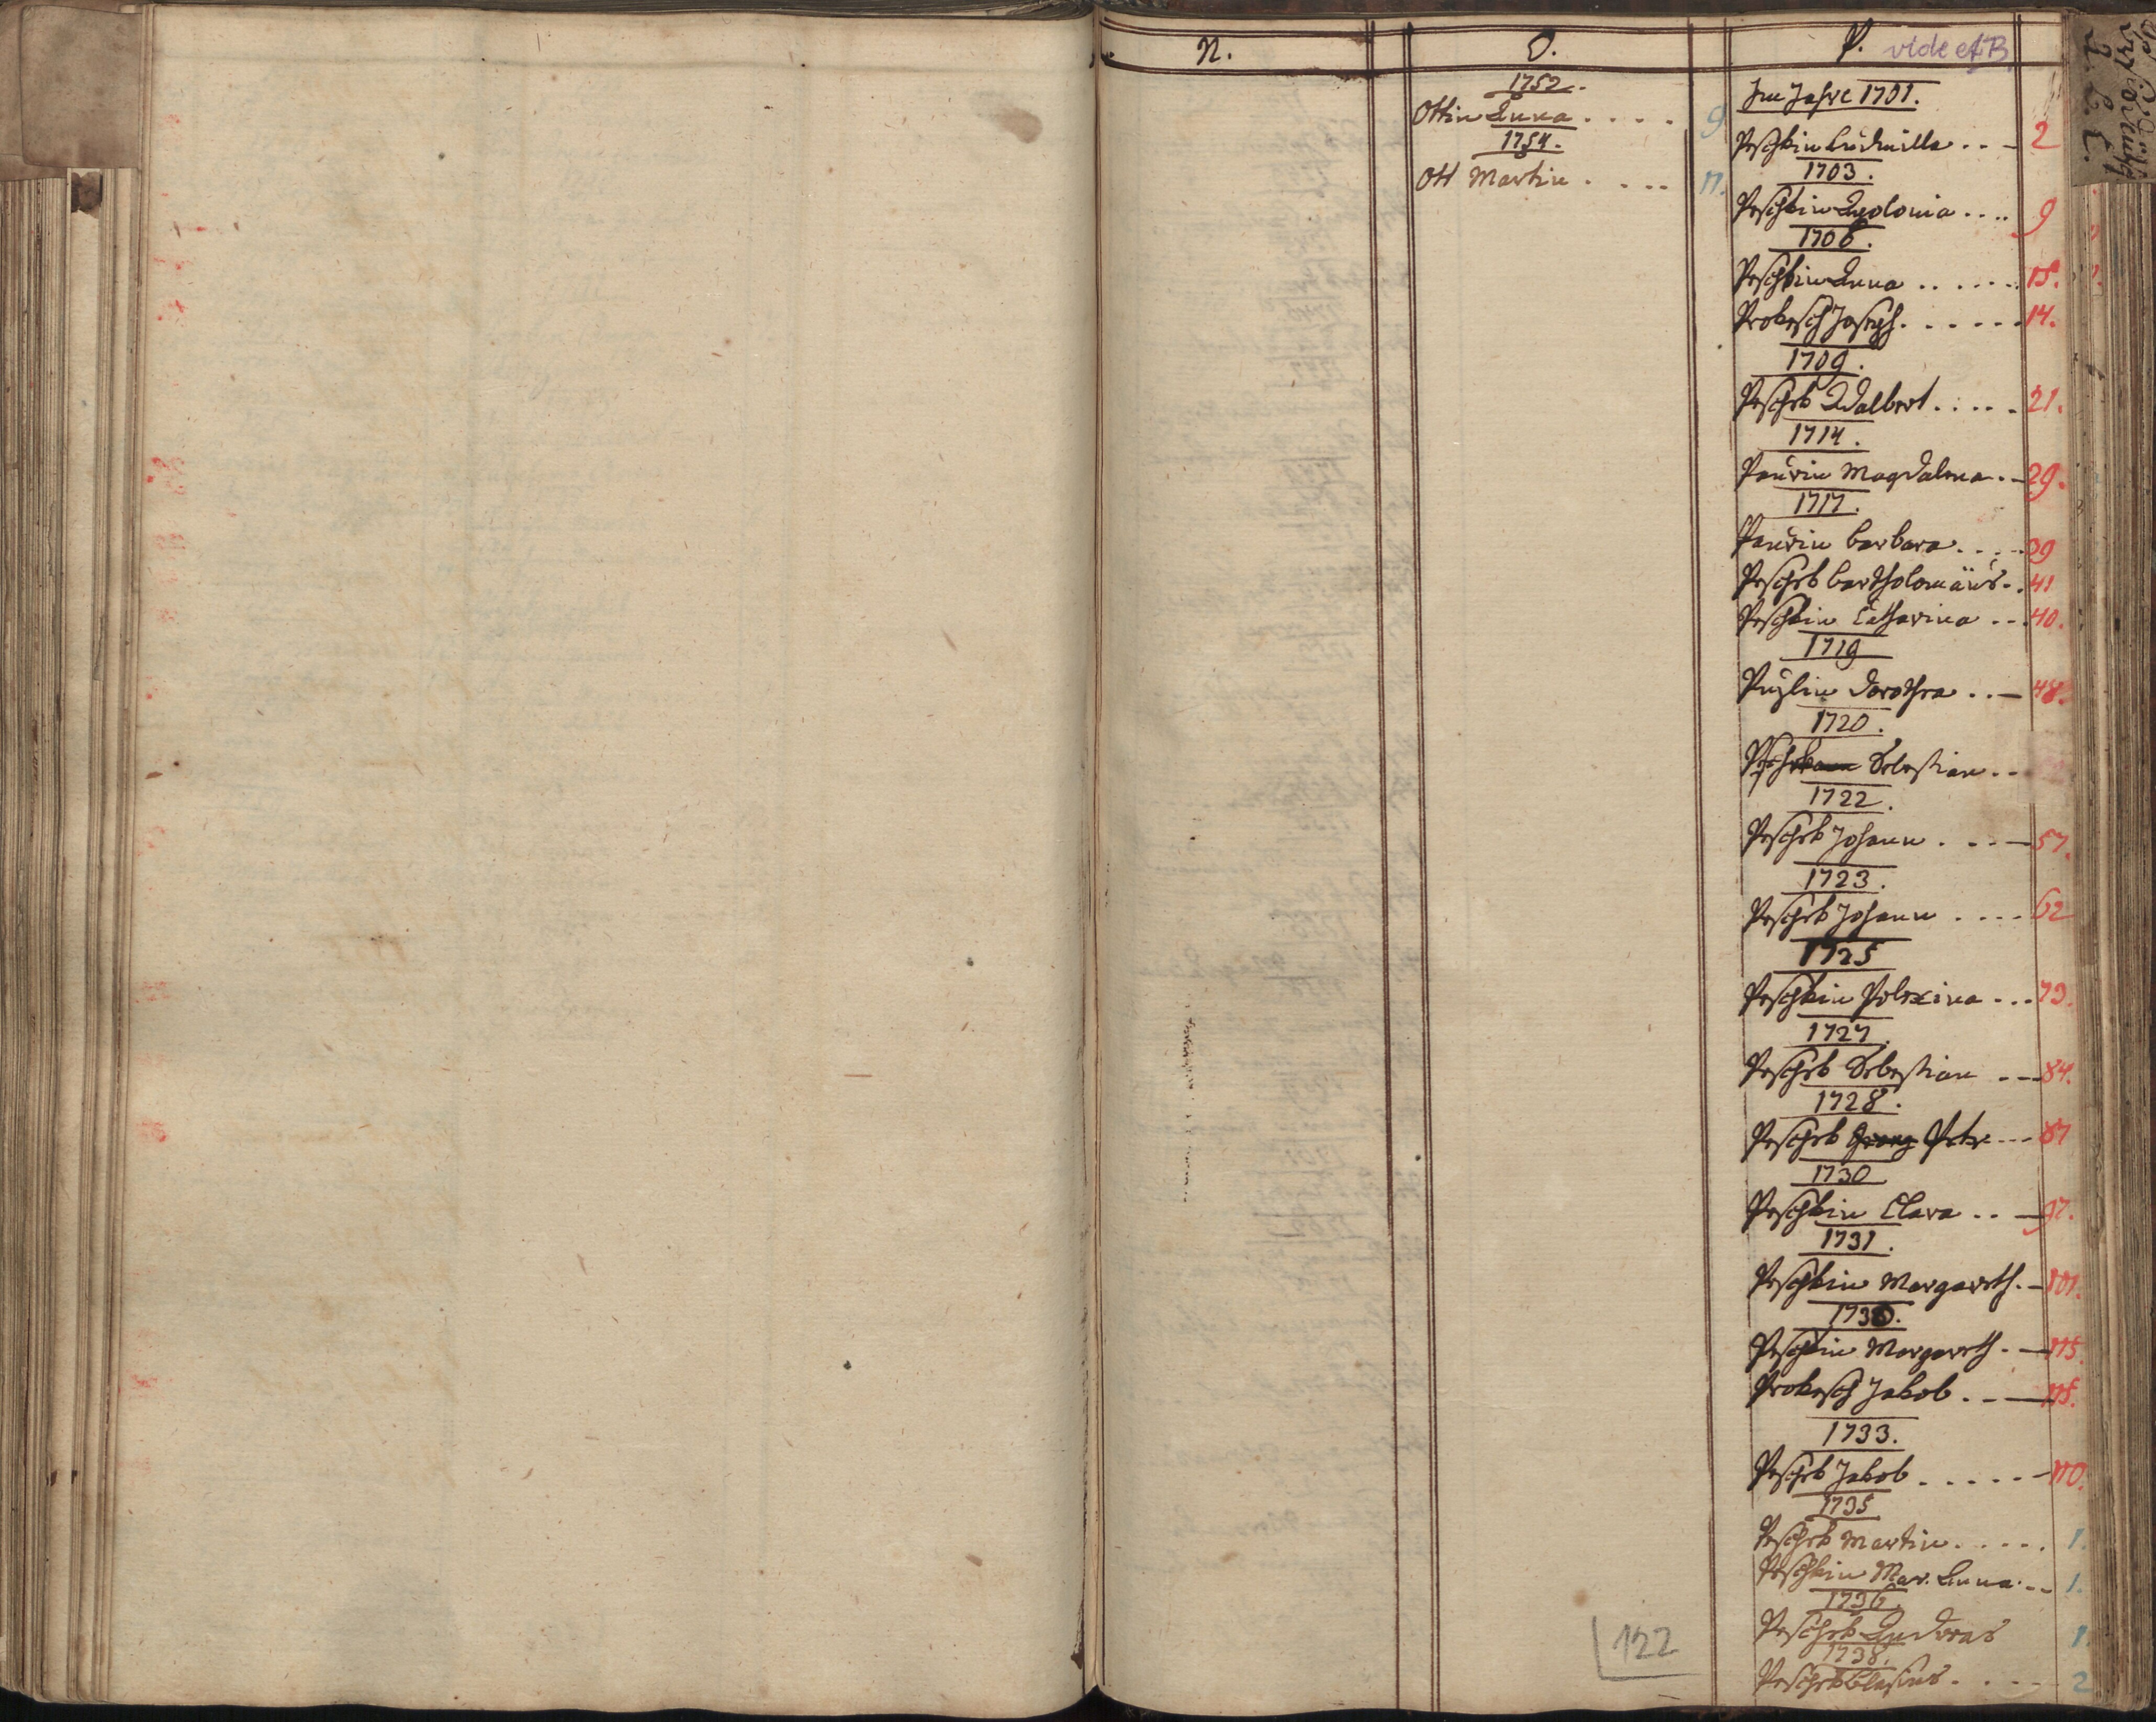 N.
O.
P. vide et B
1752.
Ottin Anna . . . . 9
1754.
Ott Martin . . . . 11.
Im Jahre 1701.
Peschkin Ludmilla . . - 2
1703.
Peschkin Apolonia . . . . 9
1706.
Peschkin Anna . . . . . . 15.
Prokesch Joseph . . . . . . 14.
1709.
Peschek Adalbert . . . . . 21.
1714.
Paurin Magdalena . - 29.
1717.
Paurin Barbara . . . . 39
Peschek Bartholomäus . . 41
Peschkin Catharina . . . 40.
1719
Dorothea . . - 48.
1720.
Sebastian . .
1722.
Peschek Johann . . . - 57.
1723.
Peschek Johann . . . . 62
1725
Peschkin Polexina . . . 73.
1727.
Peschek Sebastian . . - 84.
1728.
Peschek Georg Peter . . . 87
1730
Peschkin Clara . . - 97.
1731.
Peschkin Margareth . - 101.
Peschkin Margareth . - 115.
Prokesch Jakob . . - 115.
1733.
Peschek Jakob . . . . . - 110.
1735
Peschek Martin . . . . . 1.
Peschkin Mar. Anna . . . 1.
1736.
Peschek Andreas 1
1738.
Peschek Blasius . . . . 2
122
A. L. C.